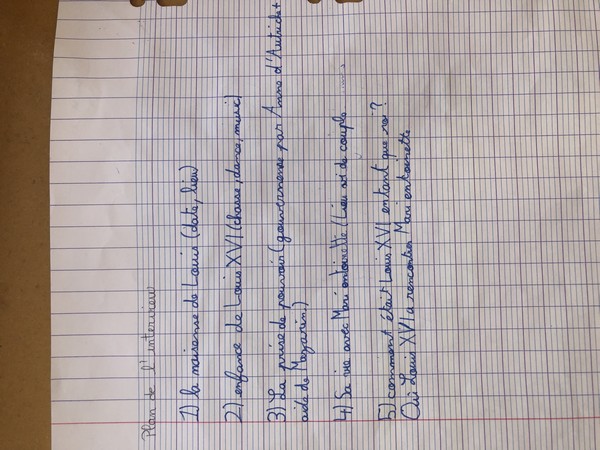 Plan de l'interview
1) la naissense de Louis (date, lieu)
2) enfance de Louis XVI (chasse, dance, music)
3) La prise de pouvoir (gouvernense par Anne d'Autriche +
aide de Mazarin)
4) Sa vie avec Mari antoinette (Lieu vi de couple
5) comment était Louis XVI entant que roi ?
Où Louis XVI a rencontrer Mari entoinette